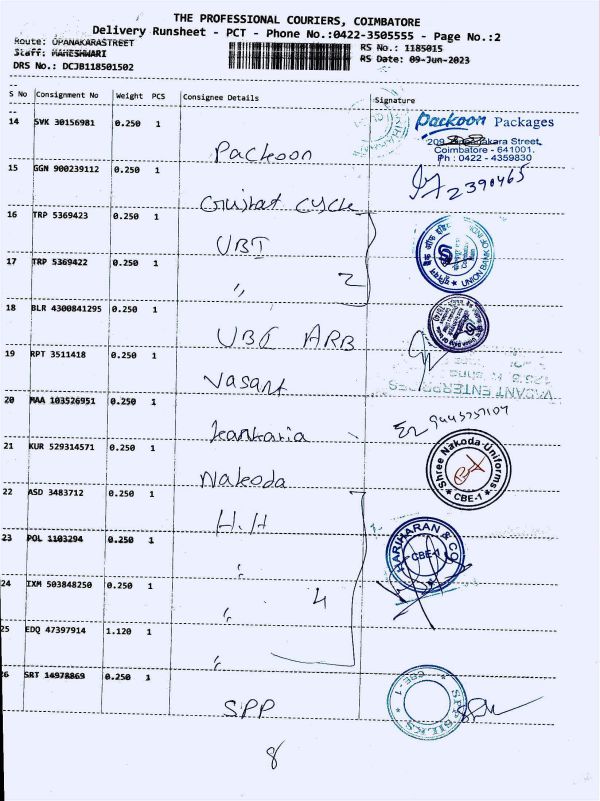 THE PROFESSIONAL COURIERS, COIMBATORE
Delivery Runsheet - PCT - Phone No.:0422-3505555 - Page No.:2
Route: OPANAKARASTREET
RS No.: 1185015
Staff: MAHESHWARI
RS Date: 09-Jun-2023
DRS No.: DCJB118501502
S No Consignment No Weight PCS Consignee Details Signature
14 SVK 30156981 0.250 1 Packoon
Packoon Packages
Street,
Coimbatore - 641001.
Ph : 0422 - 4359830
15 GGN 900239112 0.250 1 Cycle
2390465
16 TRP 5369423 0.250 1 UBI
UNION BANK OF INDIA
17 TRP 5369422 0.250 1 " 2
18 BLR 4300841295 0.250 1 UBI ARB
19 RPT 3511418 0.250 1 Vasant
VASANT ENTERPRISES
20 MAA 103526951 0.250 1 Kankaria
21 KUR 529314571 0.250 1 Nakoda
Shree Nakoda Uniforms
* CBE-1 *
22 ASD 3483712 0.250 1 H.H
HARIHARAN & CO
CBE-1
23 POL 1103294 0.250 1 "
24 IXM 503848250 0.250 1 " 4
25 EDQ 47397914 1.120 1 "
26 SRT 14978869 0.250 1 SPP
SPP SILKS
* CBE - 1 *
8